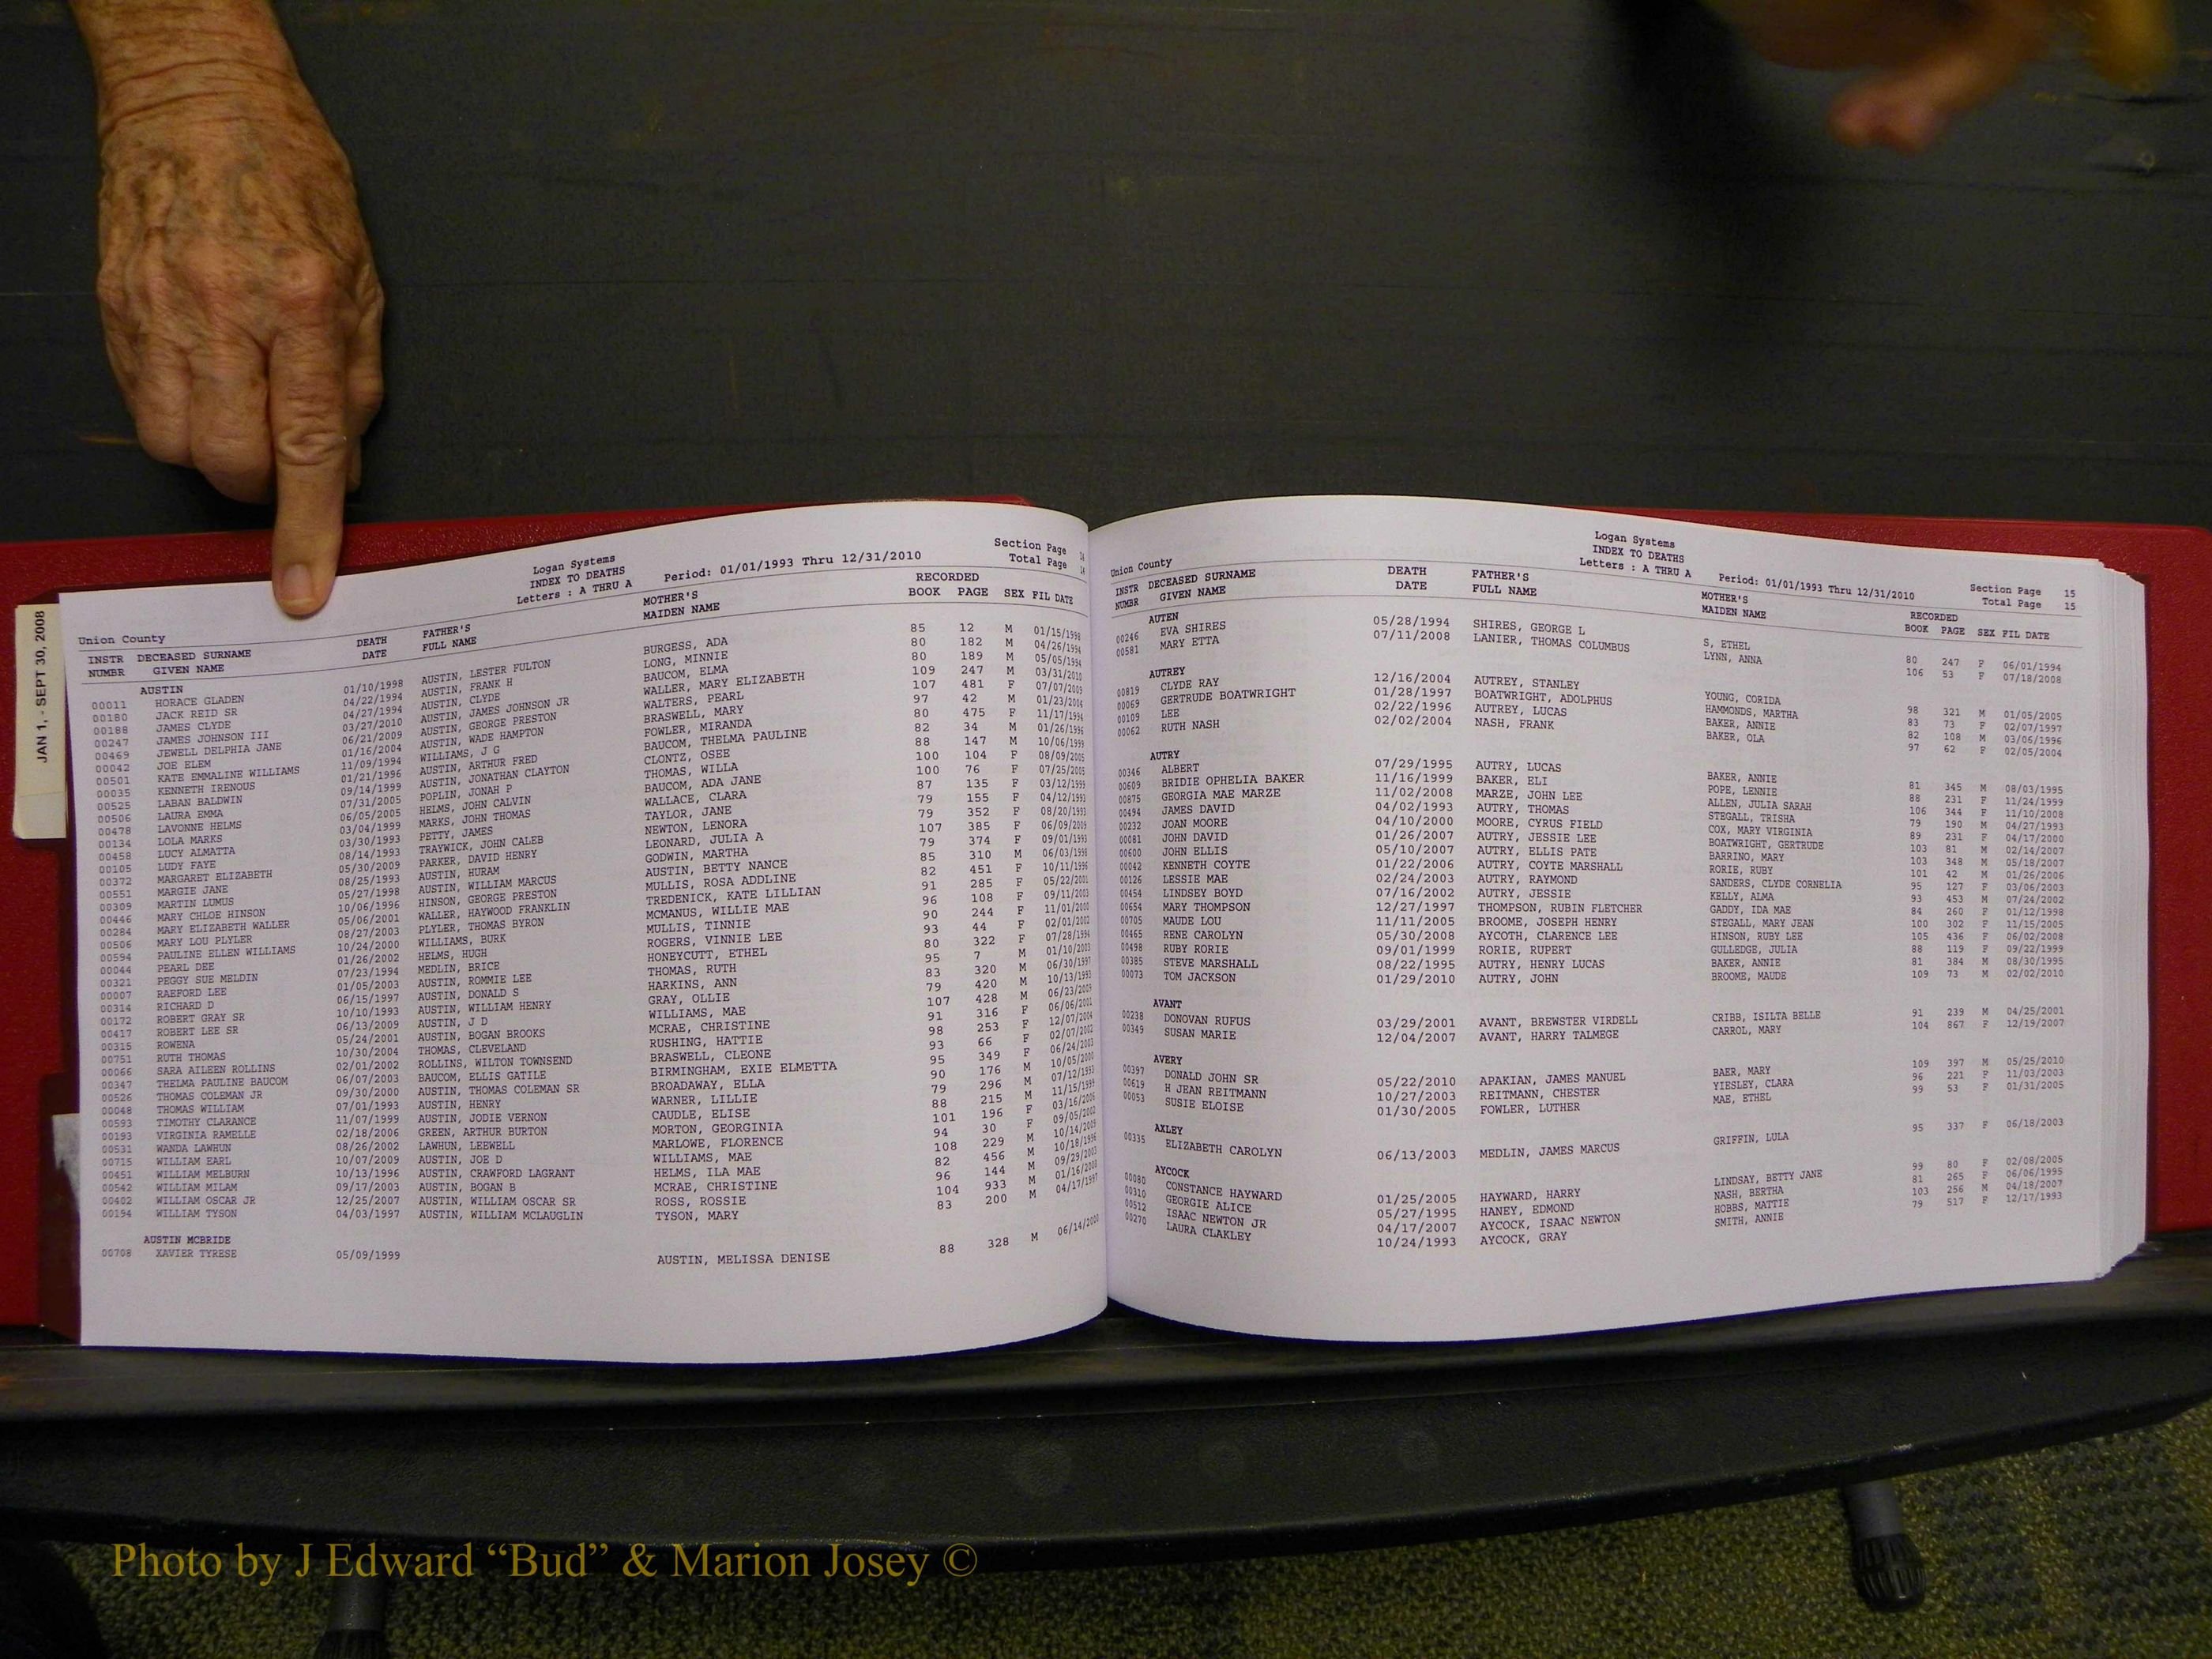 JAN 1, - SEPT 30, 2008
Logan Systems
INDEX TO DEATHS
Letters : A THRU A Period: 01/01/1993 Thru 12/31/2010
Section Page 14
Total Page 14
Union County
INSTR DECEASED SURNAME DEATH FATHER'S MOTHER'S RECORDED
NUMBR GIVEN NAME DATE FULL NAME MAIDEN NAME BOOK PAGE SEX FIL DATE
AUSTIN
00011 HORACE GLADEN 01/10/1998 AUSTIN, LESTER FULTON BURGESS, ADA 85 12 M 01/15/1998
00180 JACK REID SR 04/22/1994 AUSTIN, FRANK H LONG, MINNIE 80 182 M 04/26/1994
00188 JAMES CLYDE 04/27/1994 AUSTIN, CLYDE BAUCOM, ELMA 80 189 M 05/05/1994
00247 JAMES JOHNSON III 03/27/2010 AUSTIN, JAMES JOHNSON JR WALLER, MARY ELIZABETH 109 247 M 03/31/2010
00469 JEWELL DELPHIA JANE 06/21/2009 AUSTIN, GEORGE PRESTON WALTERS, PEARL 107 481 F 07/07/2009
00042 JOE ELEM 01/16/2004 AUSTIN, WADE HAMPTON BRASWELL, MARY 97 42 M 01/23/2004
00501 KATE EMMALINE WILLIAMS 11/09/1994 WILLIAMS, J G FOWLER, MIRANDA 80 475 F 11/17/1994
00035 KENNETH IRENOUS 01/21/1996 AUSTIN, ARTHUR FRED BAUCOM, THELMA PAULINE 82 34 M 01/26/1996
00525 LABAN BALDWIN 09/14/1999 AUSTIN, JONATHAN CLAYTON CLONTZ, OSEE 88 147 M 10/06/1999
00506 LAURA EMMA 07/31/2005 POPLIN, JONAH P THOMAS, WILLA 100 104 F 08/09/2005
00478 LAVONNE HELMS 06/05/2005 HELMS, JOHN CALVIN BAUCOM, ADA JANE 100 76 F 07/25/2005
00134 LOLA MARKS 03/04/1999 MARKS, JOHN THOMAS WALLACE, CLARA 87 135 F 03/12/1999
00458 LUCY ALMATTA 03/30/1993 PETTY, JAMES TAYLOR, JANE 79 155 F 04/12/1993
00105 LUDY FAYE 08/14/1993 TRAYWICK, JOHN CALEB NEWTON, LENORA 79 352 F 08/20/1993
00372 MARGARET ELIZABETH 05/30/2009 PARKER, DAVID HENRY LEONARD, JULIA A 107 385 F 06/09/2009
00551 MARGIE JANE 08/25/1993 AUSTIN, HURAM GODWIN, MARTHA 79 374 F 09/01/1993
00309 MARTIN LUMUS 05/27/1998 AUSTIN, WILLIAM MARCUS AUSTIN, BETTY NANCE 85 310 M 06/03/1998
00446 MARY CHLOE HINSON 10/06/1996 HINSON, GEORGE PRESTON MULLIS, ROSA ADDLINE 82 451 F 10/11/1996
00284 MARY ELIZABETH WALLER 05/06/2001 WALLER, HAYWOOD FRANKLIN TREDENICK, KATE LILLIAN 91 285 F 05/22/2001
00506 MARY LOU PLYLER 08/27/2003 PLYLER, THOMAS BYRON MCMANUS, WILLIE MAE 96 108 F 09/11/2003
00594 PAULINE ELLEN WILLIAMS 10/24/2000 WILLIAMS, BURK MULLIS, TINNIE 90 244 F 11/01/2000
00044 PEARL DEE 01/26/2002 HELMS, HUGH ROGERS, VINNIE LEE 93 44 F 02/01/2002
00321 PEGGY SUE MELDIN 07/23/1994 MEDLIN, BRICE HONEYCUTT, ETHEL 80 322 F 07/28/1994
00007 RAEFORD LEE 01/05/2003 AUSTIN, ROMMIE LEE THOMAS, RUTH 95 7 M 01/10/2003
00314 RICHARD D 06/15/1997 AUSTIN, DONALD S HARKINS, ANN 83 320 M 06/30/1997
00172 ROBERT GRAY SR 10/10/1993 AUSTIN, WILLIAM HENRY GRAY, OLLIE 79 420 M 10/13/1993
00417 ROBERT LEE SR 06/13/2009 AUSTIN, J D WILLIAMS, MAE 107 428 M 06/23/2009
00315 ROWENA 05/24/2001 AUSTIN, BOGAN BROOKS MCRAE, CHRISTINE 91 316 F 06/06/2001
00751 RUTH THOMAS 10/30/2004 THOMAS, CLEVELAND RUSHING, HATTIE 98 253 F 12/07/2004
00066 SARA AILEEN ROLLINS 02/01/2002 ROLLINS, WILTON TOWNSEND BRASWELL, CLEONE 93 66 F 02/07/2002
00347 THELMA PAULINE BAUCOM 06/07/2003 BAUCOM, ELLIS GATILE BIRMINGHAM, EXIE ELMETTA 95 349 F 06/24/2003
00526 THOMAS COLEMAN JR 09/30/2000 AUSTIN, THOMAS COLEMAN SR BROADAWAY, ELLA 90 176 M 10/05/2000
00048 THOMAS WILLIAM 07/01/1993 AUSTIN, HENRY WARNER, LILLIE 79 296 M 07/12/1993
00593 TIMOTHY CLARANCE 11/07/1999 AUSTIN, JODIE VERNON CAUDLE, ELISE 88 215 M 11/15/1999
00193 VIRGINIA RAMELLE 02/18/2006 GREEN, ARTHUR BURTON MORTON, GEORGINIA 101 196 F 03/16/2006
00531 WANDA LAWHUN 08/26/2002 LAWHUN, LEEWELL MARLOWE, FLORENCE 94 30 F 09/05/2002
00715 WILLIAM EARL 10/07/2009 AUSTIN, JOE D WILLIAMS, MAE 108 229 M 10/14/2009
00451 WILLIAM MELBURN 10/13/1996 AUSTIN, CRAWFORD LAGRANT HELMS, ILA MAE 82 456 M 10/18/1996
00542 WILLIAM MILAM 09/17/2003 AUSTIN, BOGAN B MCRAE, CHRISTINE 96 144 M 09/29/2003
00402 WILLIAM OSCAR JR 12/25/2007 AUSTIN, WILLIAM OSCAR SR ROSS, ROSSIE 104 933 M 01/16/2008
00194 WILLIAM TYSON 04/03/1997 AUSTIN, WILLIAM MCLAUGLIN TYSON, MARY 83 200 M 04/17/1997
AUSTIN MCBRIDE
00708 XAVIER TYRESE 05/09/1999 AUSTIN, MELISSA DENISE 88 328 M 06/14/2000
Logan Systems
INDEX TO DEATHS
Letters : A THRU A Period: 01/01/1993 Thru 12/31/2010
Section Page 15
Total Page 15
Union County
INSTR DECEASED SURNAME DEATH FATHER'S MOTHER'S RECORDED
NUMBR GIVEN NAME DATE FULL NAME MAIDEN NAME BOOK PAGE SEX FIL DATE
AUTEN
00246 EVA SHIRES 05/28/1994 SHIRES, GEORGE L S, ETHEL 80 247 F 06/01/1994
00581 MARY ETTA 07/11/2008 LANIER, THOMAS COLUMBUS LYNN, ANNA 106 53 F 07/18/2008
AUTREY
00819 CLYDE RAY 12/16/2004 AUTREY, STANLEY YOUNG, CORIDA 98 321 M 01/05/2005
00069 GERTRUDE BOATWRIGHT 01/28/1997 BOATWRIGHT, ADOLPHUS HAMMONDS, MARTHA 83 73 F 02/07/1997
00109 LEE 02/22/1996 AUTREY, LUCAS BAKER, ANNIE 82 108 M 03/06/1996
00062 RUTH NASH 02/02/2004 NASH, FRANK BAKER, OLA 97 62 F 02/05/2004
AUTRY
00346 ALBERT 07/29/1995 AUTRY, LUCAS BAKER, ANNIE 81 345 M 08/03/1995
00609 BRIDIE OPHELIA BAKER 11/16/1999 BAKER, ELI POPE, LENNIE 88 231 F 11/24/1999
00875 GEORGIA MAE MARZE 11/02/2008 MARZE, JOHN LEE ALLEN, JULIA SARAH 106 344 F 11/10/2008
00494 JAMES DAVID 04/02/1993 AUTRY, THOMAS STEGALL, TRISHA 79 190 M 04/27/1993
00232 JOAN MOORE 04/10/2000 MOORE, CYRUS FIELD COX, MARY VIRGINIA 89 231 F 04/17/2000
00081 JOHN DAVID 01/26/2007 AUTRY, JESSIE LEE BOATWRIGHT, GERTRUDE 103 81 M 02/14/2007
00600 JOHN ELLIS 05/10/2007 AUTRY, ELLIS PATE BARRINO, MARY 103 348 M 05/18/2007
00042 KENNETH COYTE 01/22/2006 AUTRY, COYTE MARSHALL RORIE, RUBY 101 42 M 01/26/2006
00126 LESSIE MAE 02/24/2003 AUTRY, RAYMOND SANDERS, CLYDE CORNELIA 95 127 F 03/06/2003
00454 LINDSEY BOYD 07/16/2002 AUTRY, JESSIE KELLY, ALMA 93 453 M 07/24/2002
00654 MARY THOMPSON 12/27/1997 THOMPSON, RUBIN FLETCHER GADDY, IDA MAE 84 260 F 01/12/1998
00705 MAUDE LOU 11/11/2005 BROOME, JOSEPH HENRY STEGALL, MARY JEAN 100 302 F 11/15/2005
00465 RENE CAROLYN 05/30/2008 AYCOTH, CLARENCE LEE HINSON, RUBY LEE 105 436 F 06/02/2008
00498 RUBY RORIE 09/01/1999 RORIE, RUPERT GULLEDGE, JULIA 88 119 F 09/22/1999
00385 STEVE MARSHALL 08/22/1995 AUTRY, HENRY LUCAS BAKER, ANNIE 81 384 M 08/30/1995
00073 TOM JACKSON 01/29/2010 AUTRY, JOHN BROOME, MAUDE 109 73 M 02/02/2010
AVANT
00238 DONOVAN RUFUS 03/29/2001 AVANT, BREWSTER VIRDELL CRIBB, ISILTA BELLE 91 239 M 04/25/2001
00349 SUSAN MARIE 12/04/2007 AVANT, HARRY TALMEGE CARROL, MARY 104 867 F 12/19/2007
AVERY
00397 DONALD JOHN SR 05/22/2010 APAKIAN, JAMES MANUEL BAER, MARY 109 397 M 05/25/2010
00619 H JEAN REITMANN 10/27/2003 REITMANN, CHESTER YIESLEY, CLARA 96 221 F 11/03/2003
00053 SUSIE ELOISE 01/30/2005 FOWLER, LUTHER MAE, ETHEL 99 53 F 01/31/2005
AXLEY
00335 ELIZABETH CAROLYN 06/13/2003 MEDLIN, JAMES MARCUS GRIFFIN, LULA 95 337 F 06/18/2003
AYCOCK
00080 CONSTANCE HAYWARD 01/25/2005 HAYWARD, HARRY LINDSAY, BETTY JANE 99 80 F 02/08/2005
00310 GEORGIE ALICE 05/27/1995 HANEY, EDMOND NASH, BERTHA 81 265 F 06/06/1995
00512 ISAAC NEWTON JR 04/17/2007 AYCOCK, ISAAC NEWTON HOBBS, MATTIE 103 256 M 04/18/2007
00270 LAURA CLAKLEY 10/24/1993 AYCOCK, GRAY SMITH, ANNIE 79 517 F 12/17/1993
Photo by J Edward “Bud” & Marion Josey ©